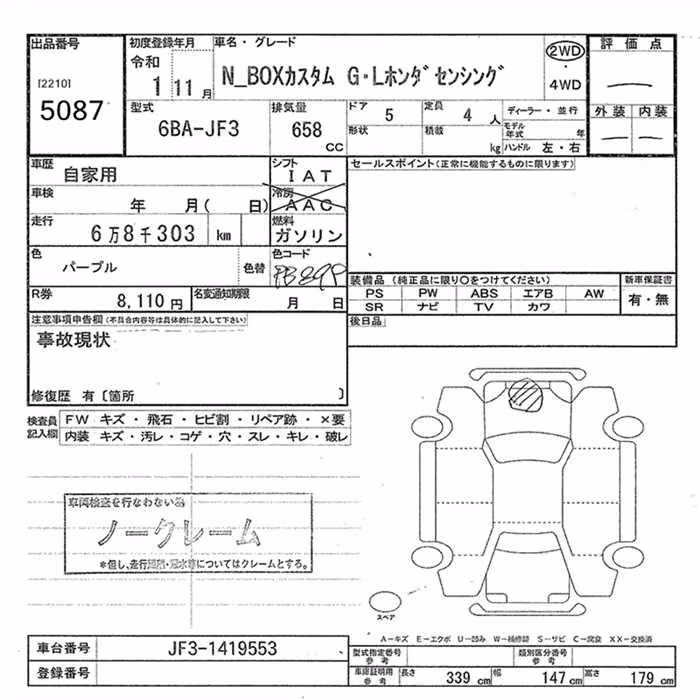 出品番号
[2210]
5087
初度登録年月
令和
1 11月
車名・グレード
N_BOXカスタム G・Lホンダセンシング
2WD
・
4WD
評価点
外装 内装
型式
6BA-JF3
排気量
658
CC
ドア
5
定員
4 人
形状
積載
kg
ディーラー・並行
モデル年式 年
ハンドル 左・右
車歴
自家用
シフト
IAT
車検
年 月( 日)
冷房
AAC
走行
6万8千303 km
燃料
ガソリン
色
パープル
色替
色コード
R券
8,110 円
名変通知期限
月 日
セールスポイント(正常に機能するものに限ります)
装備品 (純正品に限り○をつけてください)
PS PW ABS エアB AW
SR ナビ TV カワ
新車保証書
有・無
後日品
注意事項申告欄(不具合内容等は具体的に記入して下さい)
事故現状
修復歴 有〔箇所 〕
検査員記入欄
FW キズ・飛石・ヒビ割・リペア跡・×要
内装 キズ・汚レ・コゲ・穴・スレ・キレ・破レ
車両検査を行なわない為
ノークレーム
*但し、走行
についてはクレームとする。
スペア
A-キズ E-エクボ U-凹み W-補修跡 S-サビ C-腐食 XX-交換済
車台番号
JF3-1419553
登録番号
型式指定番号
参考
類別区分番号
参考
車庫証明用
参考
長さ 339 cm
幅 147 cm
高さ 179 cm